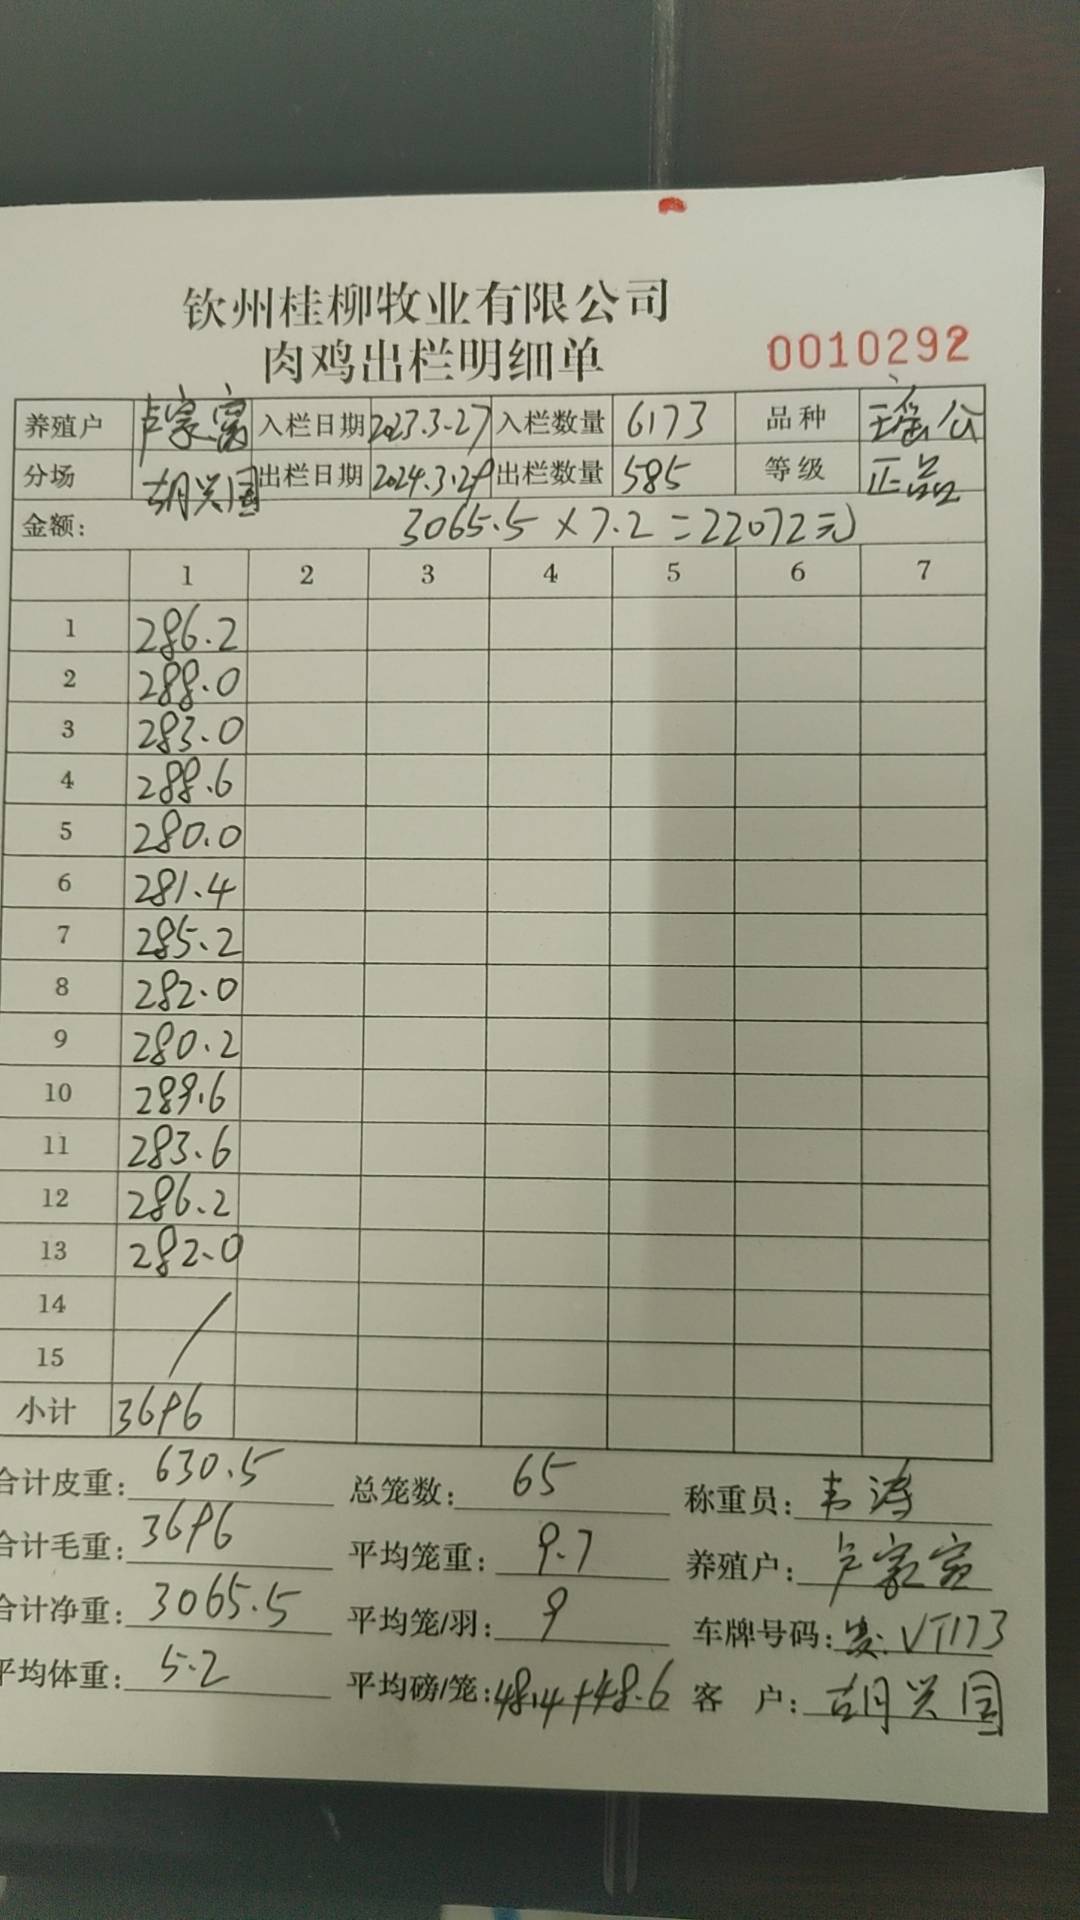 钦州桂柳牧业有限公司
肉鸡出栏明细单 0010292
养殖户 卢家富 入栏日期 2023.3.27 入栏数量 6173 品种 瑶公
分场 胡兴国 出栏日期 2024.3.29 出栏数量 585 等级 正品
金额: 3065.5×7.2=22072元
1 2 3 4 5 6 7
1 286.2
2 288.0
3 283.0
4 288.6
5 280.0
6 281.4
7 285.2
8 282.0
9 280.2
10 289.6
11 283.6
12 286.2
13 282.0
14
15
小计 3696
合计皮重: 630.5 总笼数: 65 称重员: 韦涛
合计毛重: 3696 平均笼重: 9.7 养殖户: 卢家富
合计净重: 3065.5 平均笼/羽: 9 车牌号码: VT173
平均体重: 5.2 平均磅/笼: 48.4+48.6 客户: 胡兴国